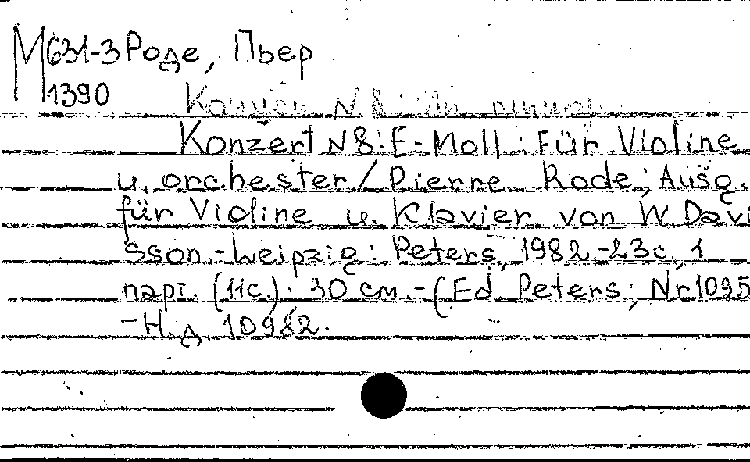 М631-3 Роде, Пьер
1390
Konzert N 8: E-Moll: Für Violine
u. orchester / Pierre Rode; Ausg.
für Violine u. Klavier von W. Davi
sson.-Leipzig: Peters, 1982.-23с., 1
парт. (11с.). 30 см.-(Ed. Peters; Nr1095
-Н.д. 10982.